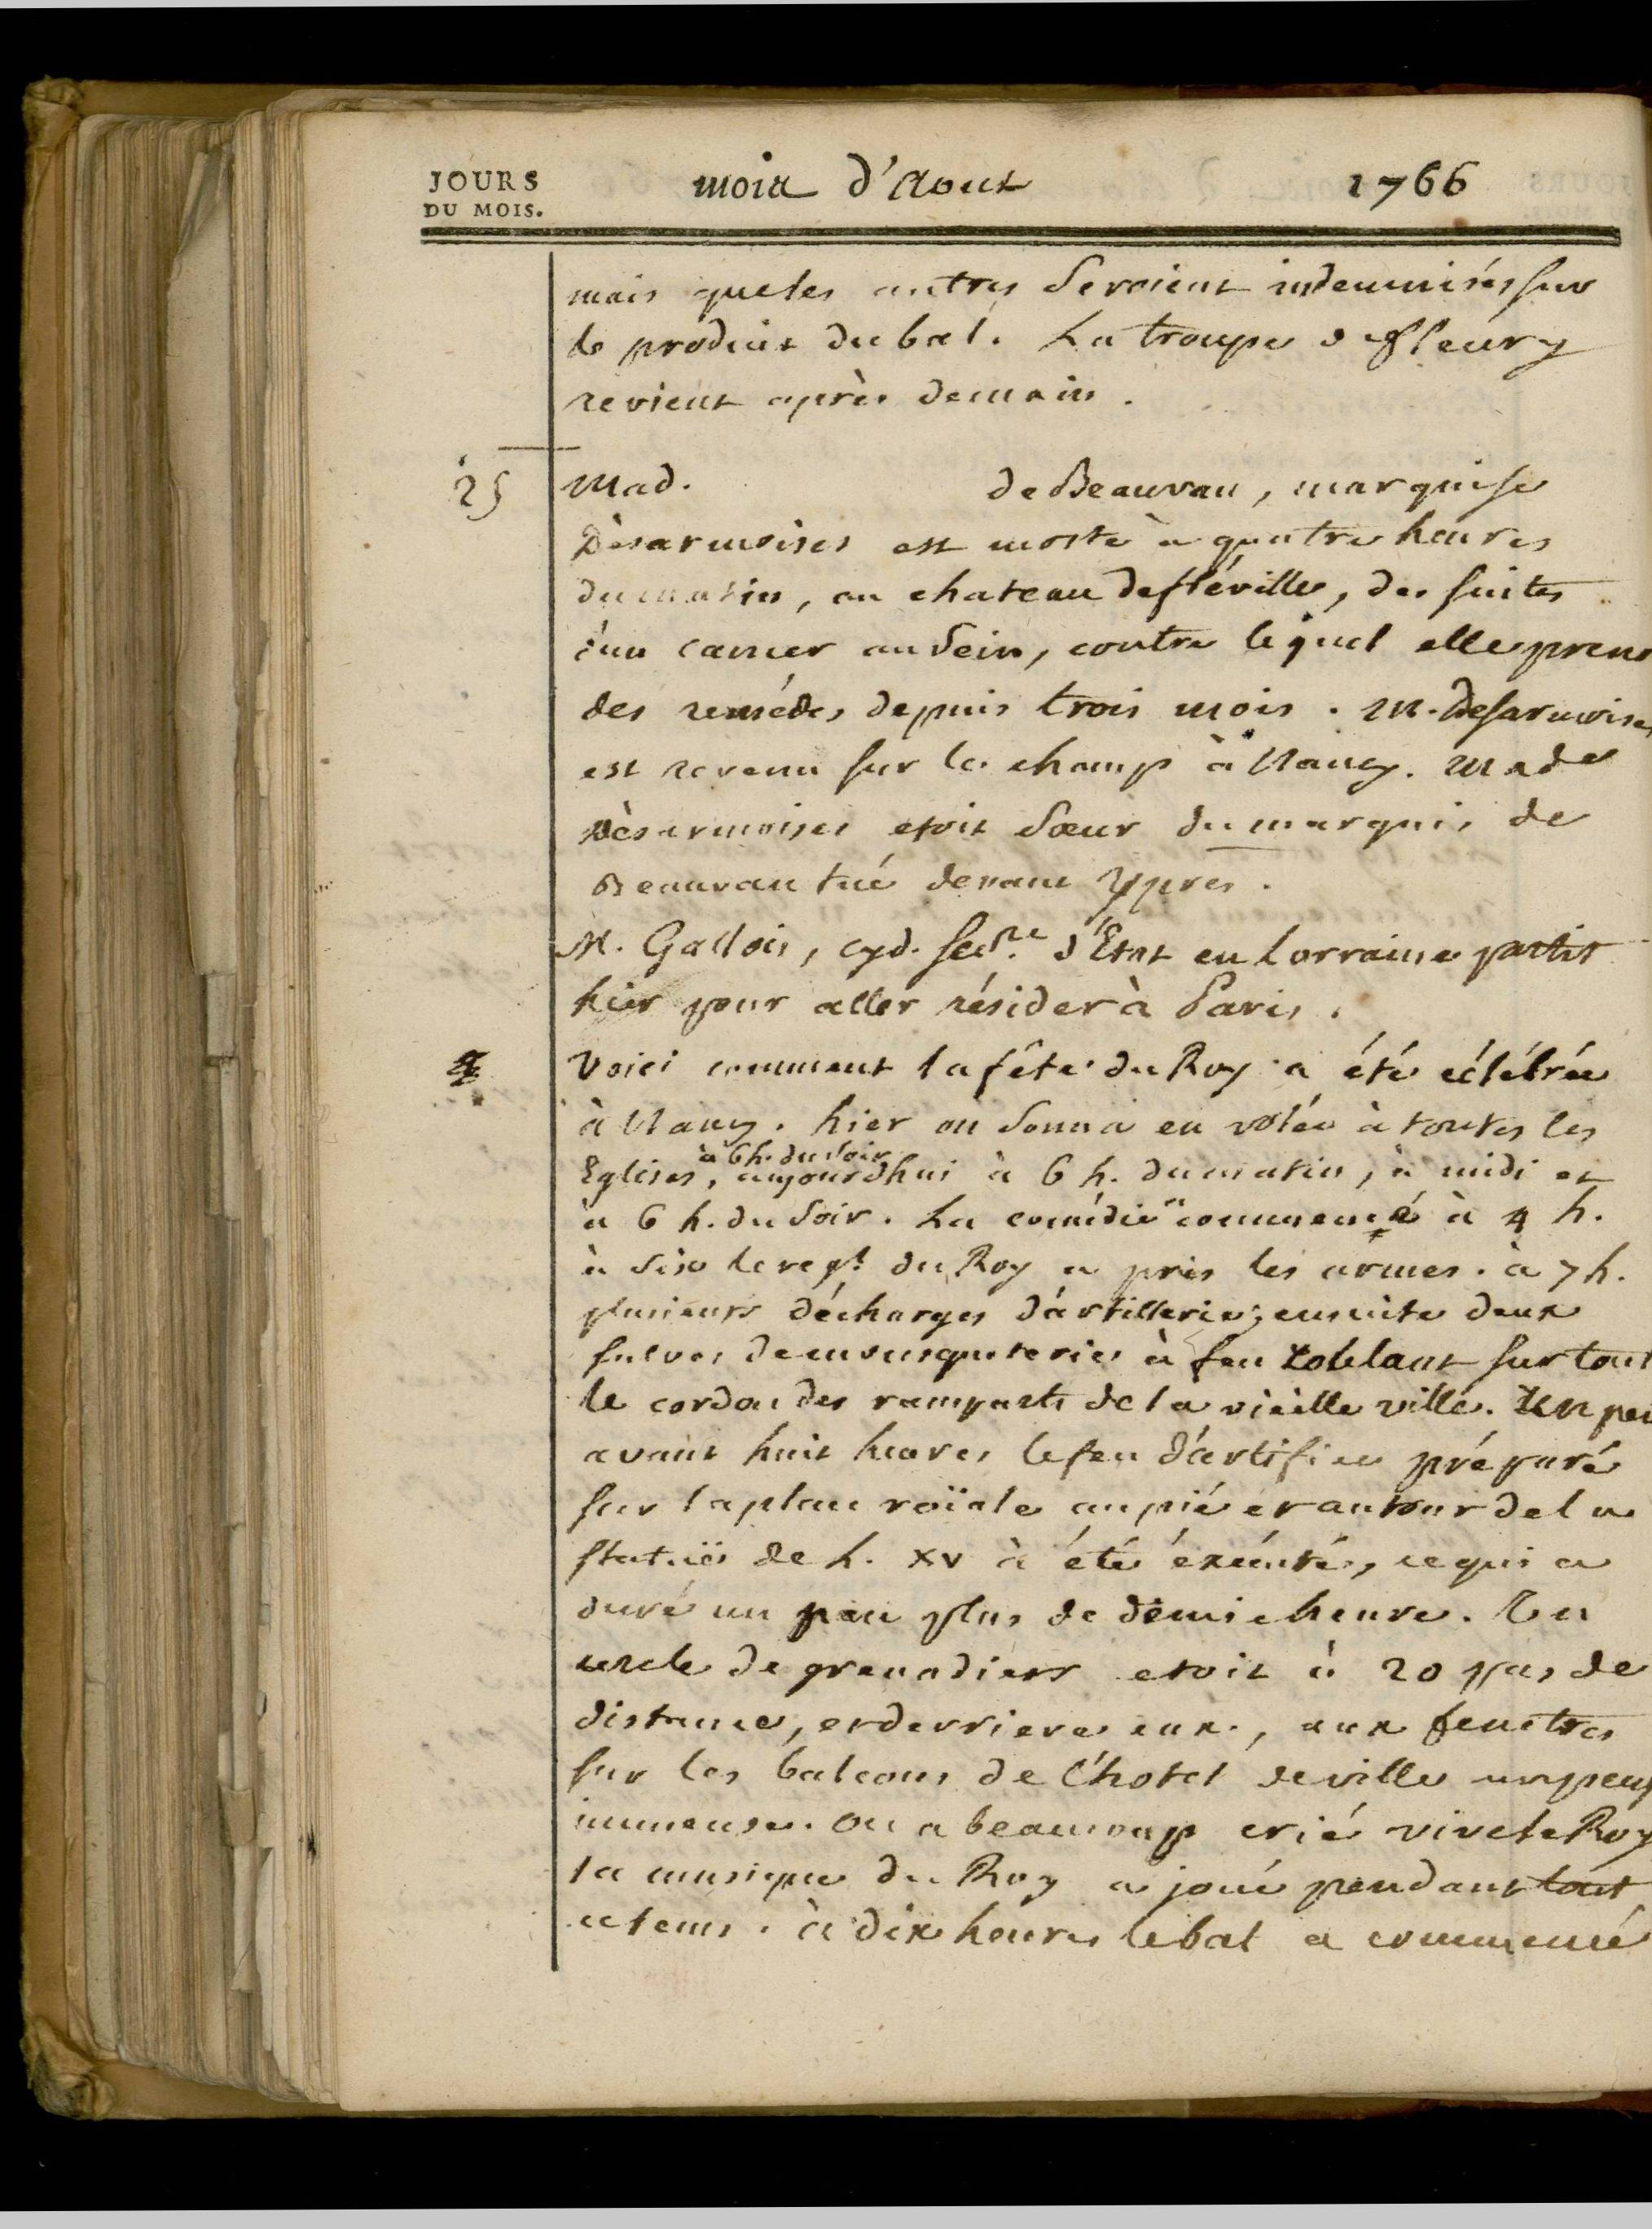 JOURS
DU MOIS.
mois d'Aout 1766
mais que les autres seroient indemnisés sur
le produit du bal. La troupe de fleury
revient après demain.
25
Mad. de Beauvau, marquise
Dèsarmoises est morte à quatre heures
du matin, au chateau de fléville, des suites
d'un cancer au sein, contre lequel elle pren
des remédes depuis trois mois. M. Desarmoises
est revenu sur le champ à Nancy. Made
Dèsarmoises etoit sœur du marquis de
Beauvau tué devant Ypres.
M. Gallois, cyd. secre. d'Etat en Lorraine partit
hier pour aller résider à Paris.
Voici comment la fête du Roy a été célébrée
à Nancy. hier on sonna en volée à toutes les
à 6 h. du soir
Eglises, aujourdhui à 6 h. du matin, à midi et
à 6 h. du soir. La comédie a commencé à 4 h.
à six le regt. du Roy a pris les armes. à 7 h.
plusieurs décharges d'artillerie; ensuite deux
salves de mousqueteries à feu roblant sur tout
le cordon des ramparts de la vieille ville. Un peu
avant huit heures le feu d'artifice préparé
sur la place roïale au pié et autour de la
statuë de L. XV à été éxécuté, ce qui a
duré un peu plus de demie heure. Un
cercle de grenadiers etoit à 20 pas de
distance, et derriere eux, aux fenetres
sur les balcons de l'hotel de ville un peup
immense. On a beaucoup crié vive le Roy
la musique du Roy a joué pendant tout
ce tems. à dix heures le bal a commencé